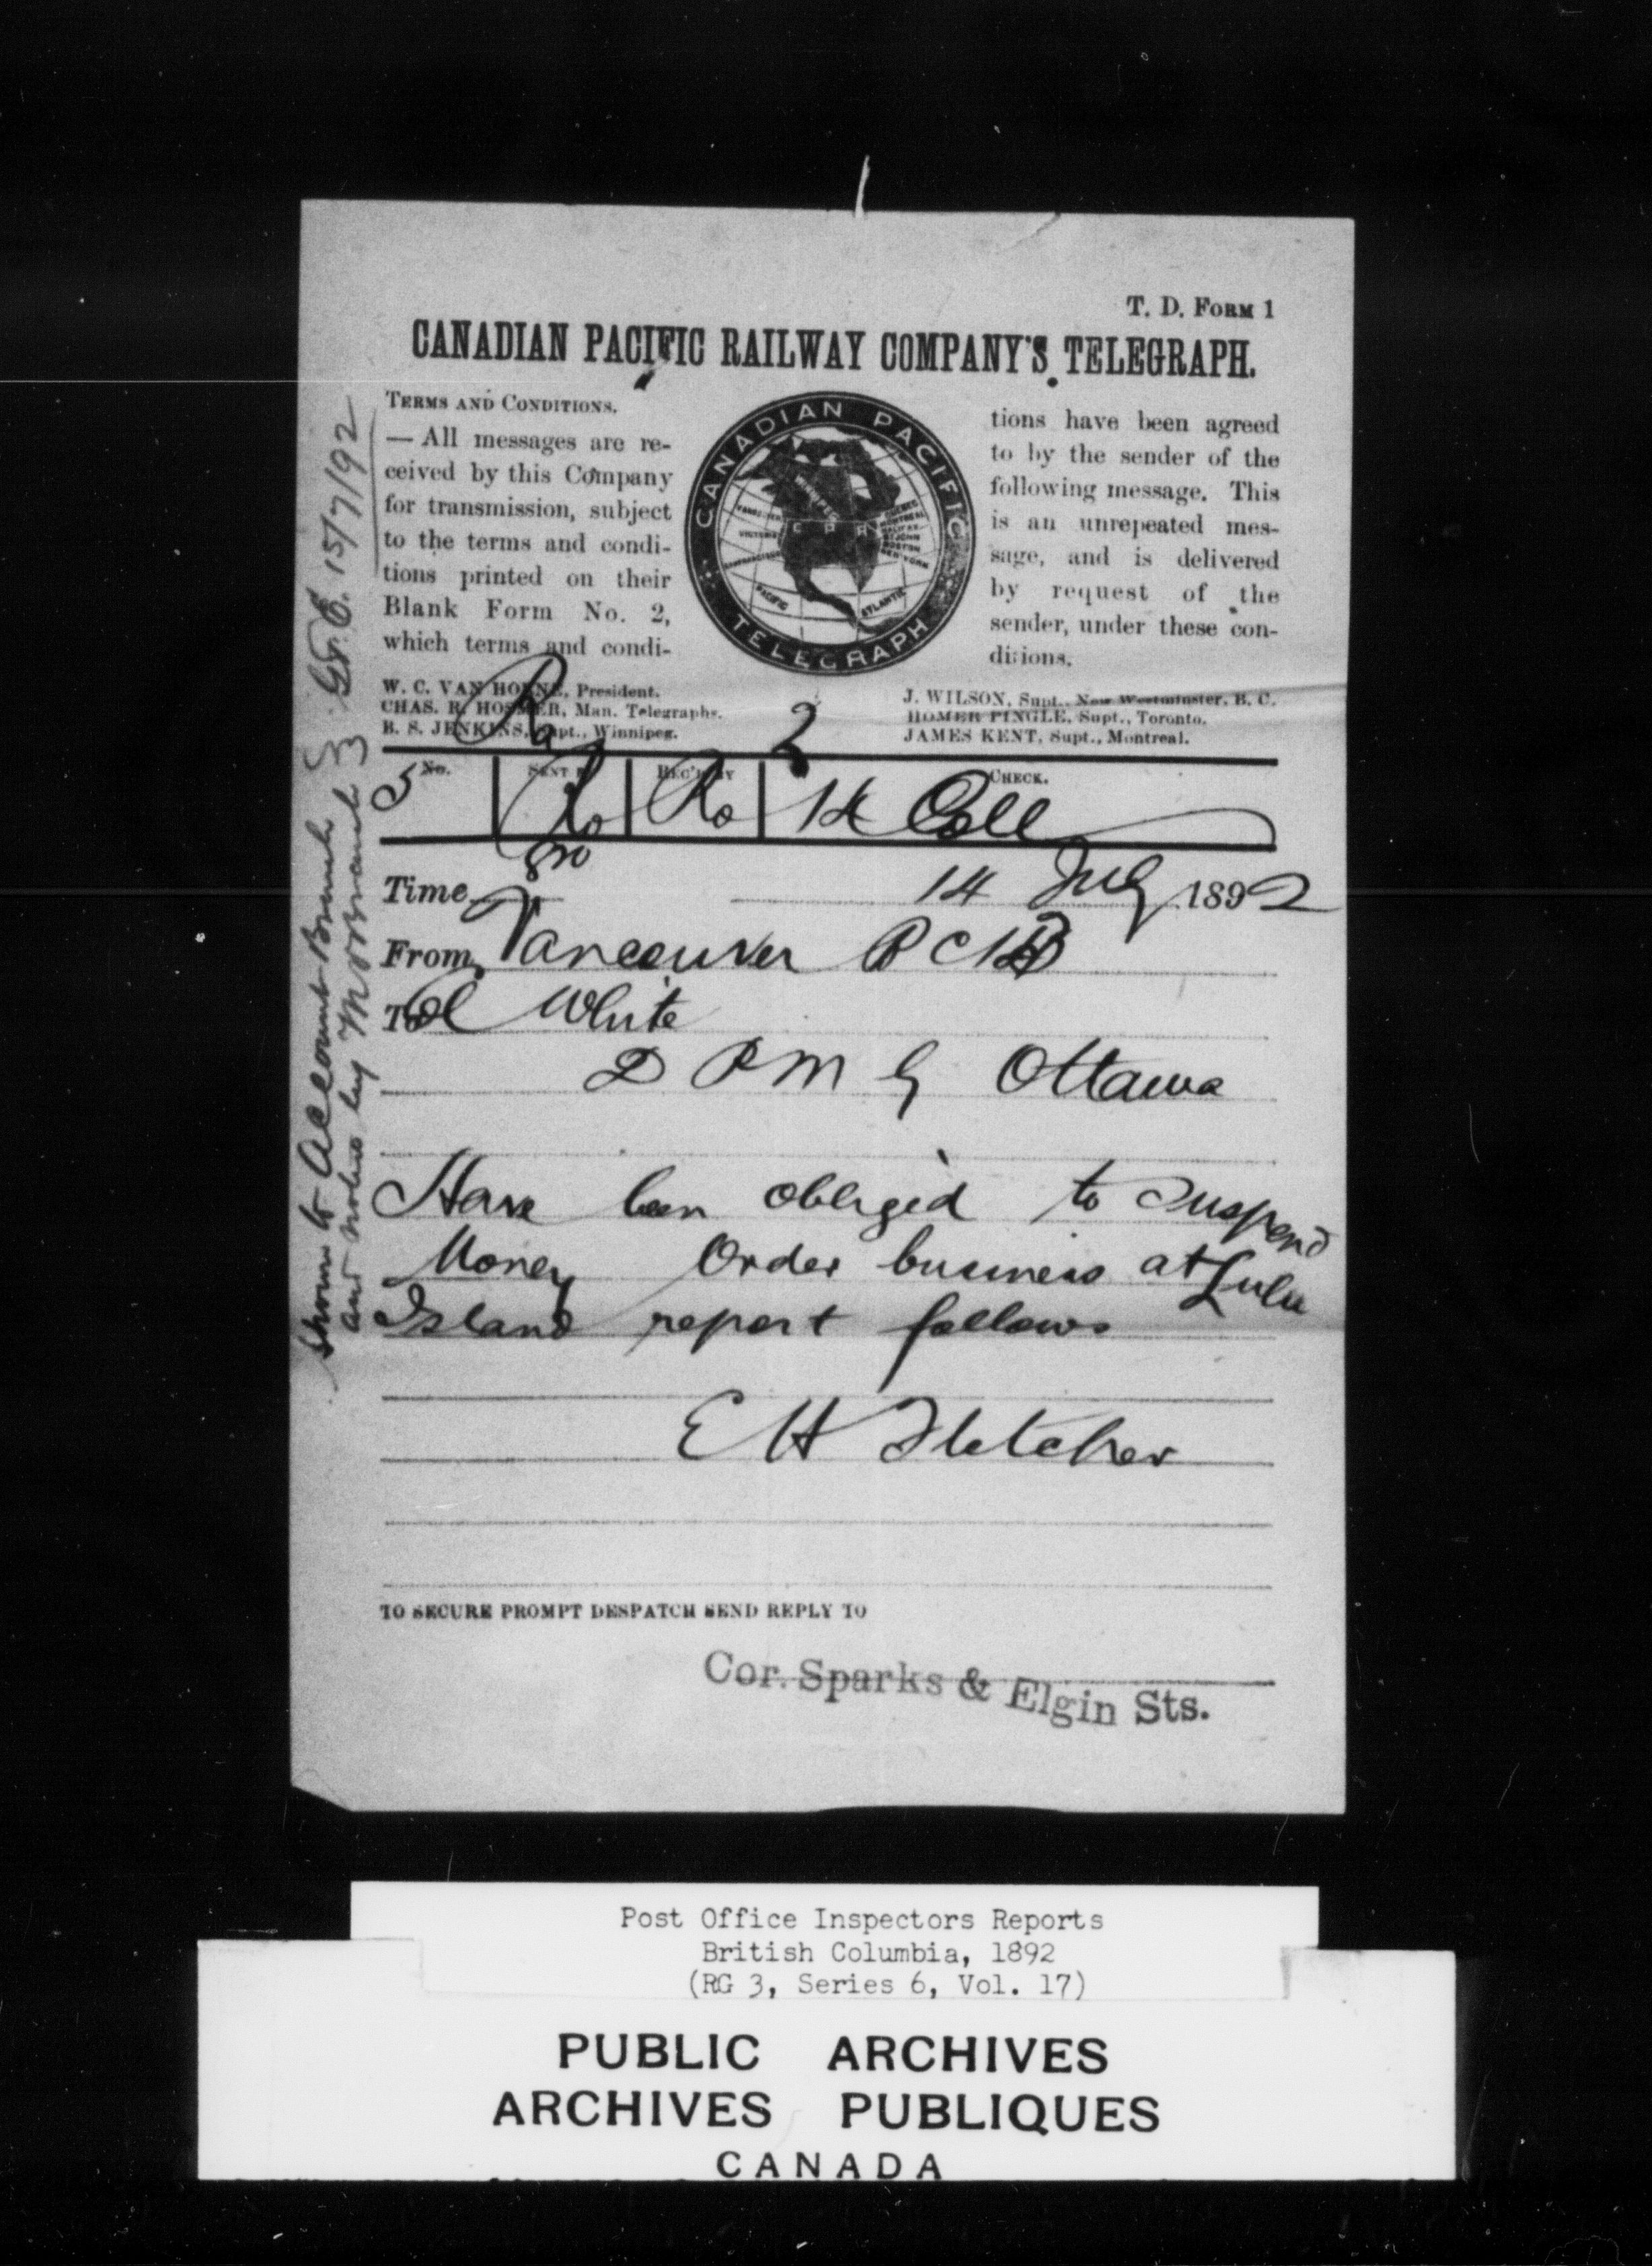 T. D. FORM 1
CANADIAN PACIFIC RAILWAY COMPANY'S TELEGRAPH.
TERMS AND CONDITIONS.
— All messages are re-
ceived by this Company
for transmission, subject
to the terms and condi-
tions printed on their
Blank Form No. 2,
which terms and condi-
CANADIAN PACIFIC
WINNIPEG
VANCOUVER
VICTORIA
SANFRANCISCO
C P R
QUEBEC
MONTREAL
HALIFAX
ST JOHN
BOSTON
NEW YORK
PACIFIC
ATLANTIC
TELEGRAPH
tions have been agreed
to by the sender of the
following message. This
is an unrepeated mes-
sage, and is delivered
by request of the
sender, under these con-
ditions.
W. C. VAN HORNE, President.
CHAS. R. HOSMER, Man. Telegraphs.
B. S. JENKINS, Supt., Winnipeg.
J. WILSON, Supt., New Westminster, B. C.
HOMER PINGLE, Supt., Toronto.
JAMES KENT, Supt., Montreal.
2
No. SENT BY REC'D BY CHECK.
5 Ro Ro 14 Coll
Time 14 July 1892
From Vancouver B C
To Col White
D P M G Ottawa
Have been obliged to suspend
Money Order business at Lulu
Island report follows
E H Fletcher
TO SECURE PROMPT DESPATCH SEND REPLY TO
Cor. Sparks & Elgin Sts.
Shown to Account Branch
and noted by M O Branch
15/7/92
Post Office Inspectors Reports
British Columbia, 1892
(RG 3, Series 6, Vol. 17)
PUBLIC ARCHIVES
ARCHIVES PUBLIQUES
CANADA